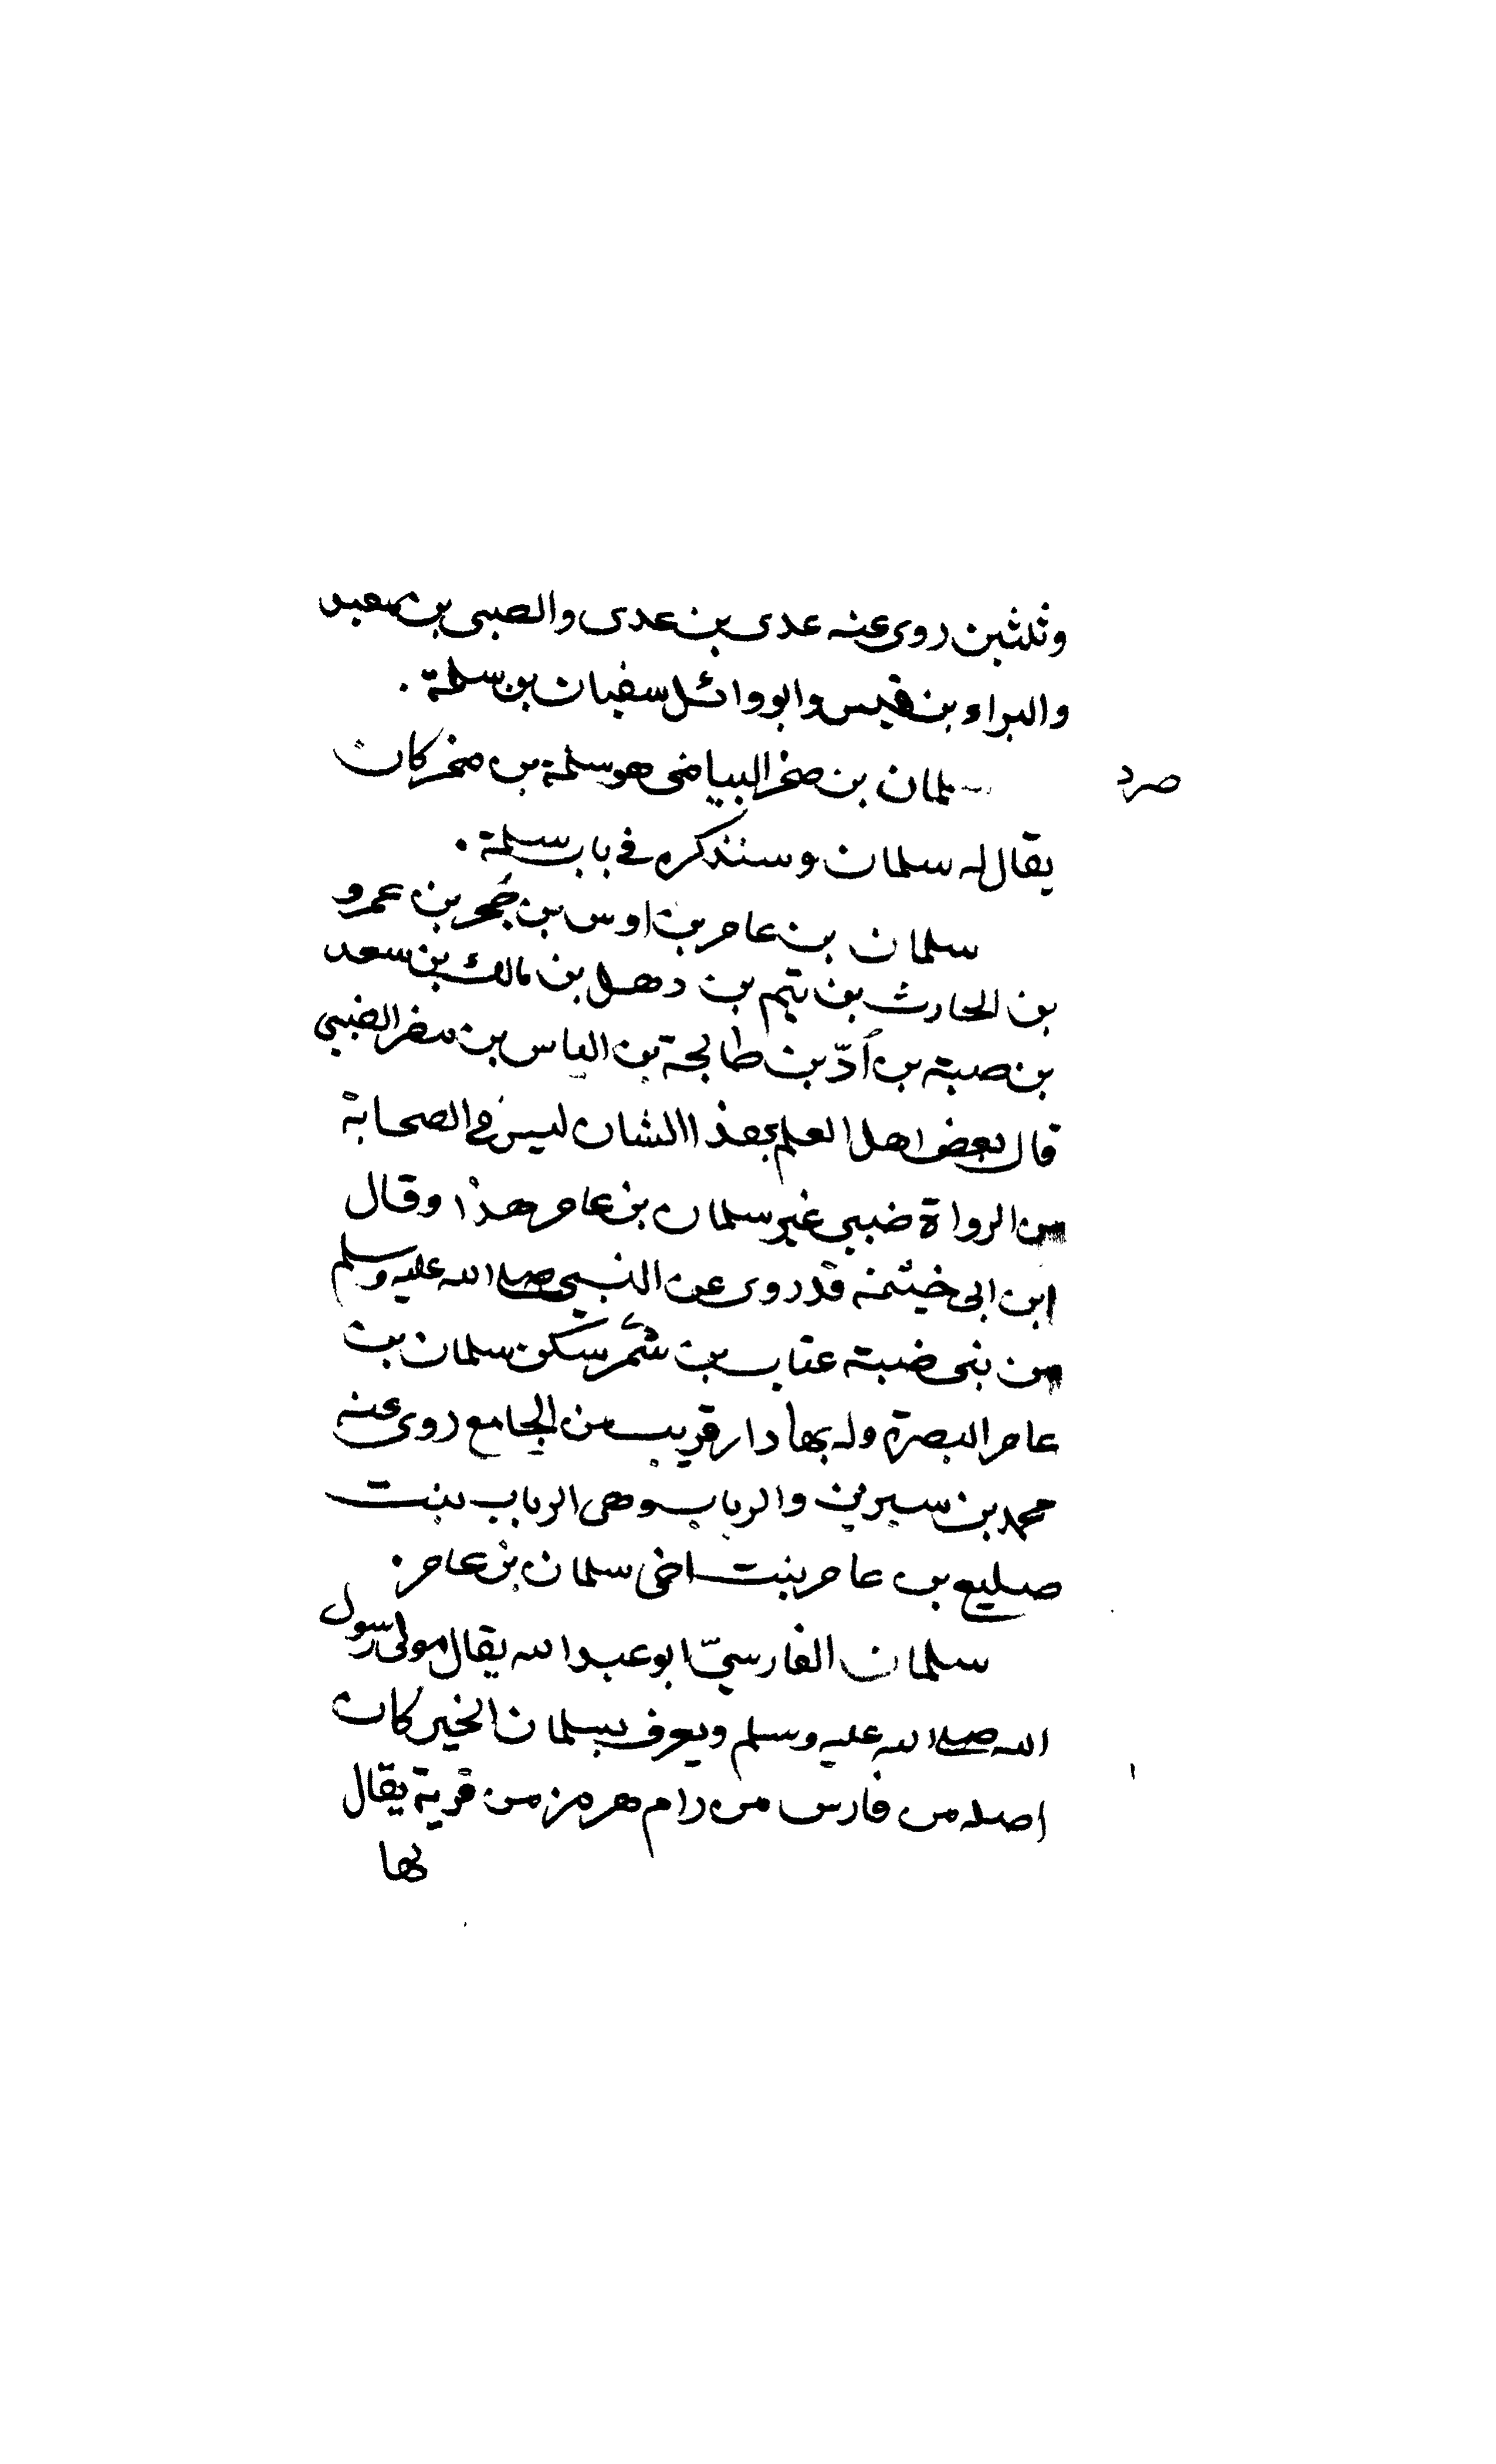 وثلثين روى عنه عدى بن عدى والصبى بن معبد
والبراء بن قيس وابو وائل سفيان بن سلمة .
صرد
سلمان بن صخر البياضى هو سلمة بن صخر كان
يقال له سلمان وسنذكره في باب سلمة .
سلمان بن عامر بن اوس بن حُجر بن عمرو
بن الحارث بن تيم بن دهل بن مالك بن سعد
بن ضبة بن اُدّ بن طابخة بن الياس بن مضر الضبي
قال بعض اهل العلم بهذا الشان ليس في الصحابة
من الرواة ضبي غير سلمان بن عامر هذا وقال
ابن ابى خيثمة قد روى عن النبي صلى الله عليه وسلم
من بنى ضبة عتاب بن شمر سكن سلمان بن
عامر البصرة وله بها دار قريب من الجامع روى عنه
محمد بن سيرين والرباب وهى الرباب بنت
صليع بن عامر بنت اخى سلمان بن عامر .
سلمان الفارسيّ ابو عبد الله يقال مولى رسول
الله صلى الله عليه وسلم ويعرف بسلمان الخير كان
اصله من فارس من رام هرمز من قرية يقال
لها